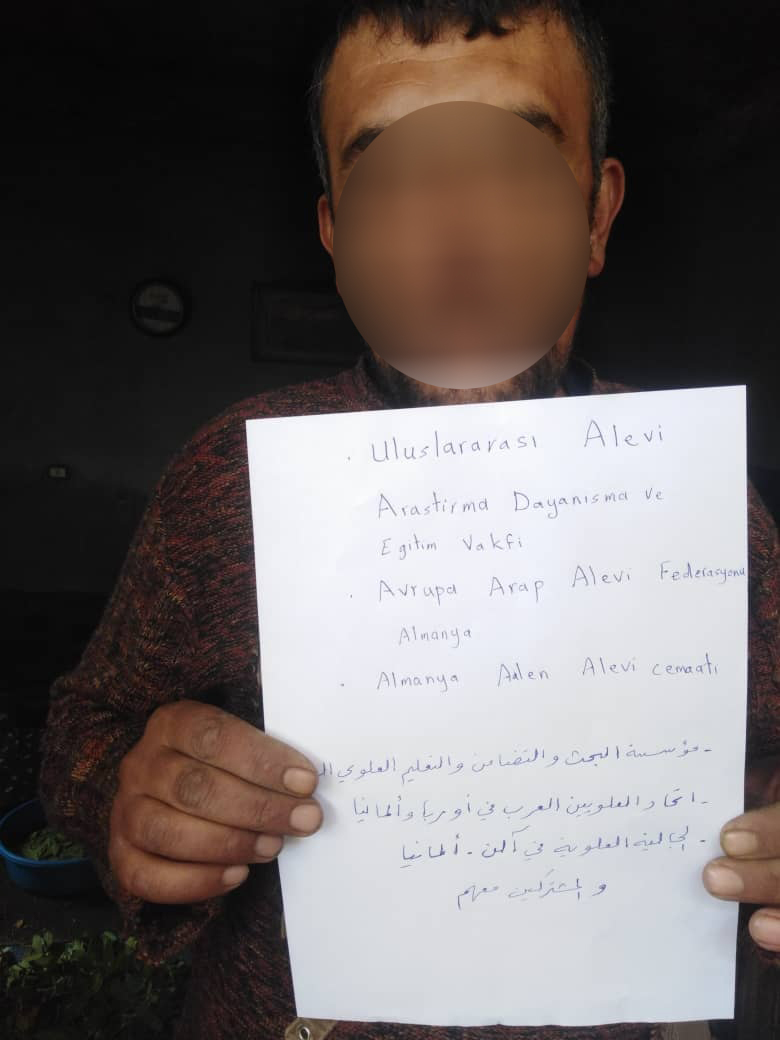 . Uluslararası Alevi
Arastirma Dayanısma ve
Egitim Vakfi
. Avrupa Arap Alevi Federasyonu
Almanya
. Almanya Aalen Alevi cemaatı
- مؤسسة البحث والتضامن والتعليم العلوي
- اتحاد العلويين العرب في أوربا وألمانيا
- الجالية العلوية في آلن - ألمانيا
و المشتركين معهم